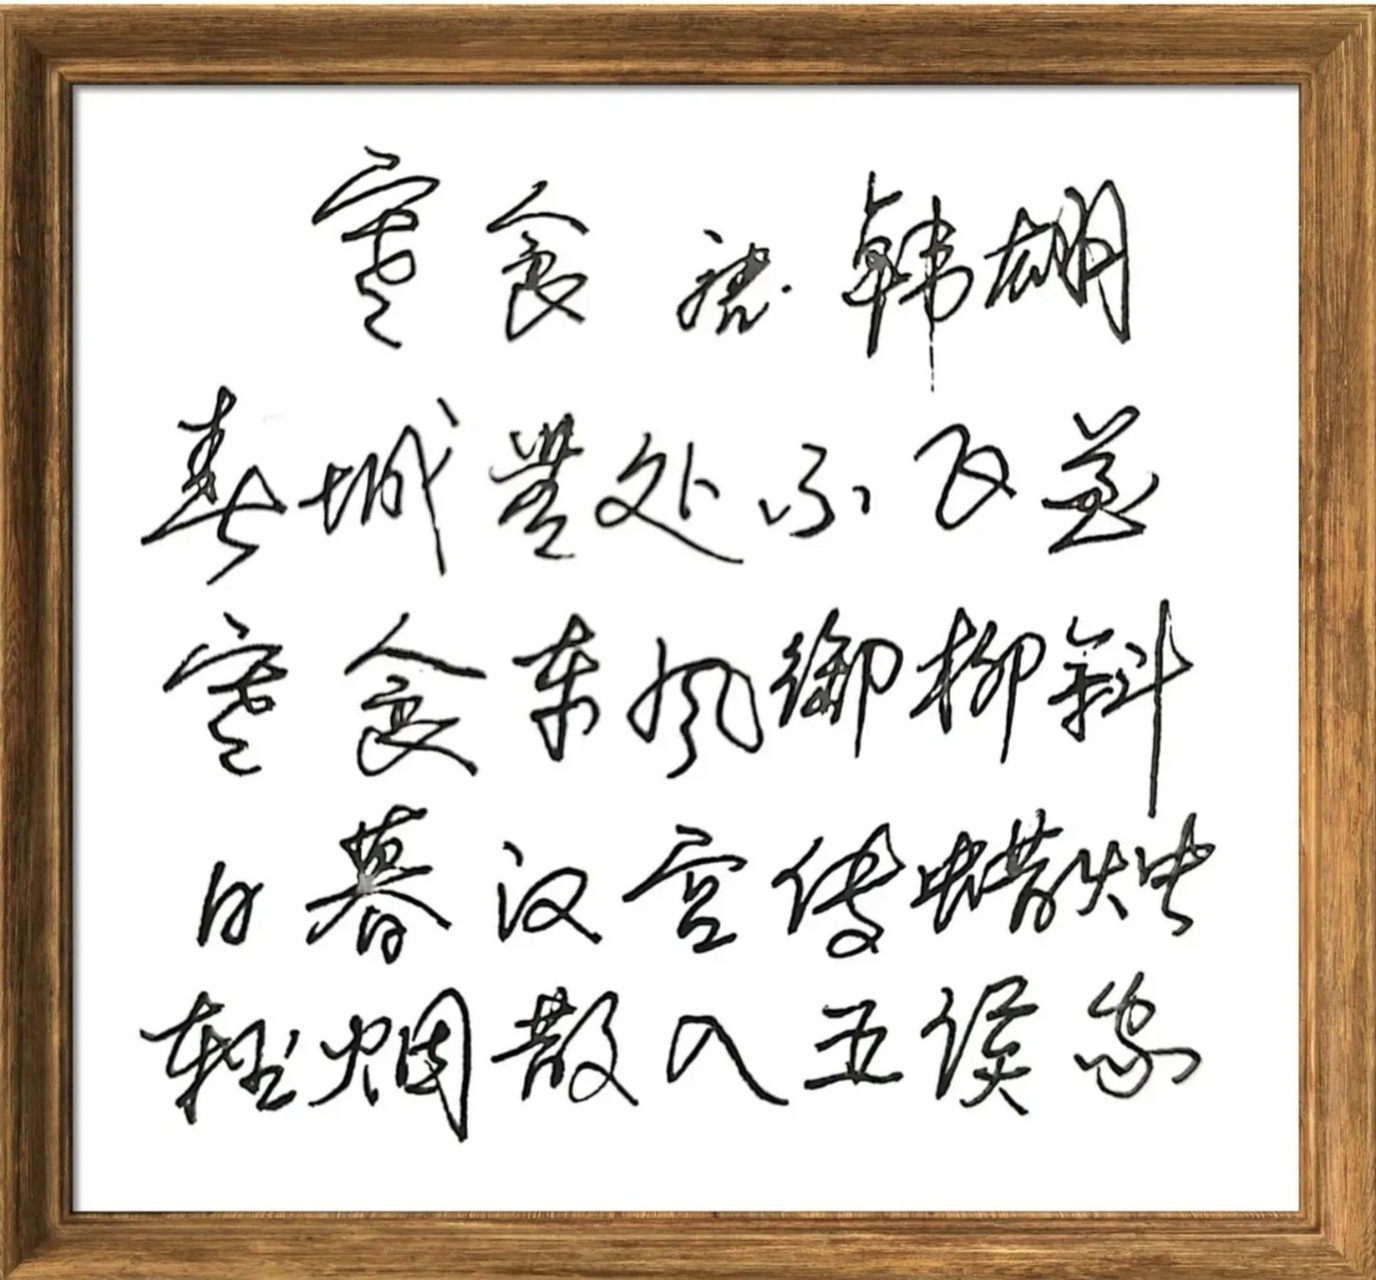 寒食 唐·韩翃
春城無处不飞花
寒食东风御柳斜
日暮汉宫传蜡烛
轻烟散入五侯家